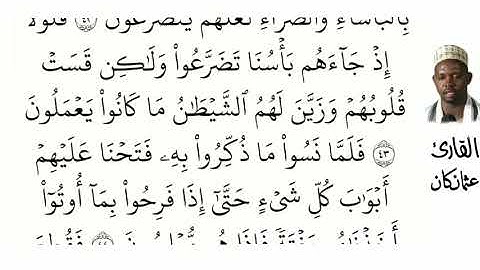 بِٱلْبَأْسَآءِ وَٱلضَّرَّآءِ لَعَلَّهُمْ يَتَضَرَّعُونَ ٤٢ فَلَوْلَآ
إِذْ جَآءَهُم بَأْسُنَا تَضَرَّعُوا۟ وَلَٰكِن قَسَتْ
قُلُوبُهُمْ وَزَيَّنَ لَهُمُ ٱلشَّيْطَٰنُ مَا كَانُوا۟ يَعْمَلُونَ
٤٣ فَلَمَّا نَسُوا۟ مَا ذُكِّرُوا۟ بِهِۦ فَتَحْنَا عَلَيْهِمْ
أَبْوَٰبَ كُلِّ شَىْءٍ حَتَّىٰٓ إِذَا فَرِحُوا۟ بِمَآ أُوتُوٓا۟
القارئ
عثمانكان